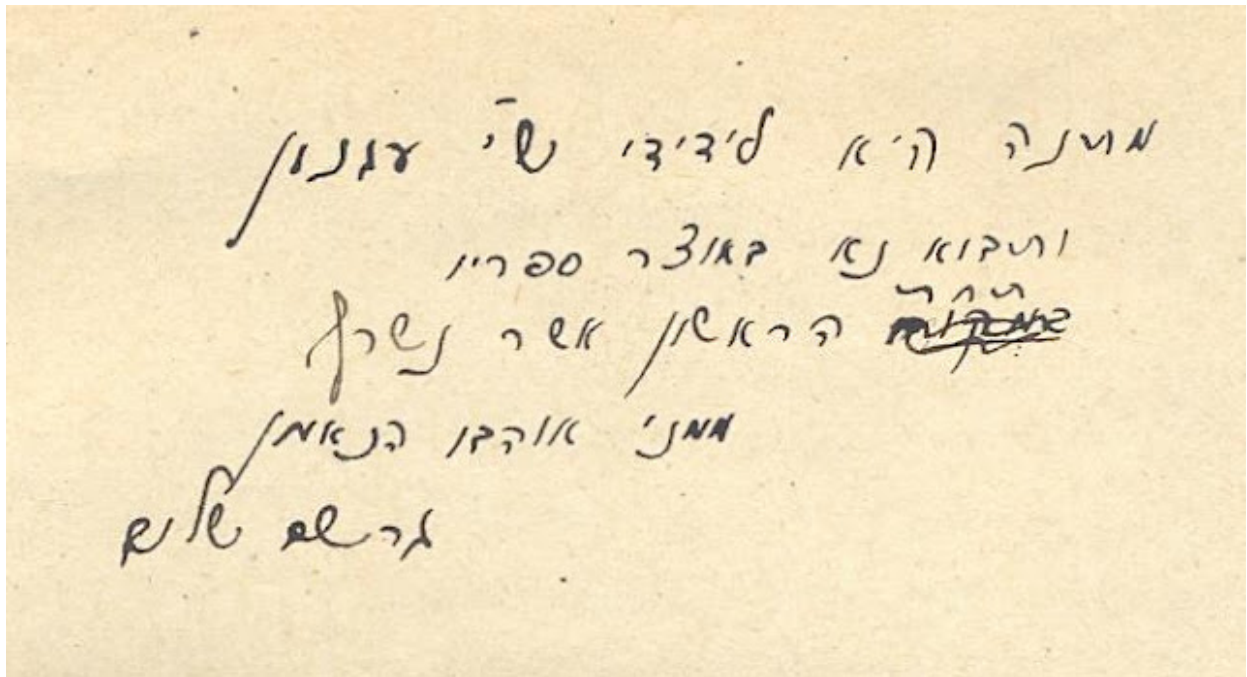 מתנה היא לידידי ש״י עגנון
ותבוא נא באוצר ספריו
תחת
הראשון אשר נשרף
ממני אוהבו הנאמן
גרשם שלום